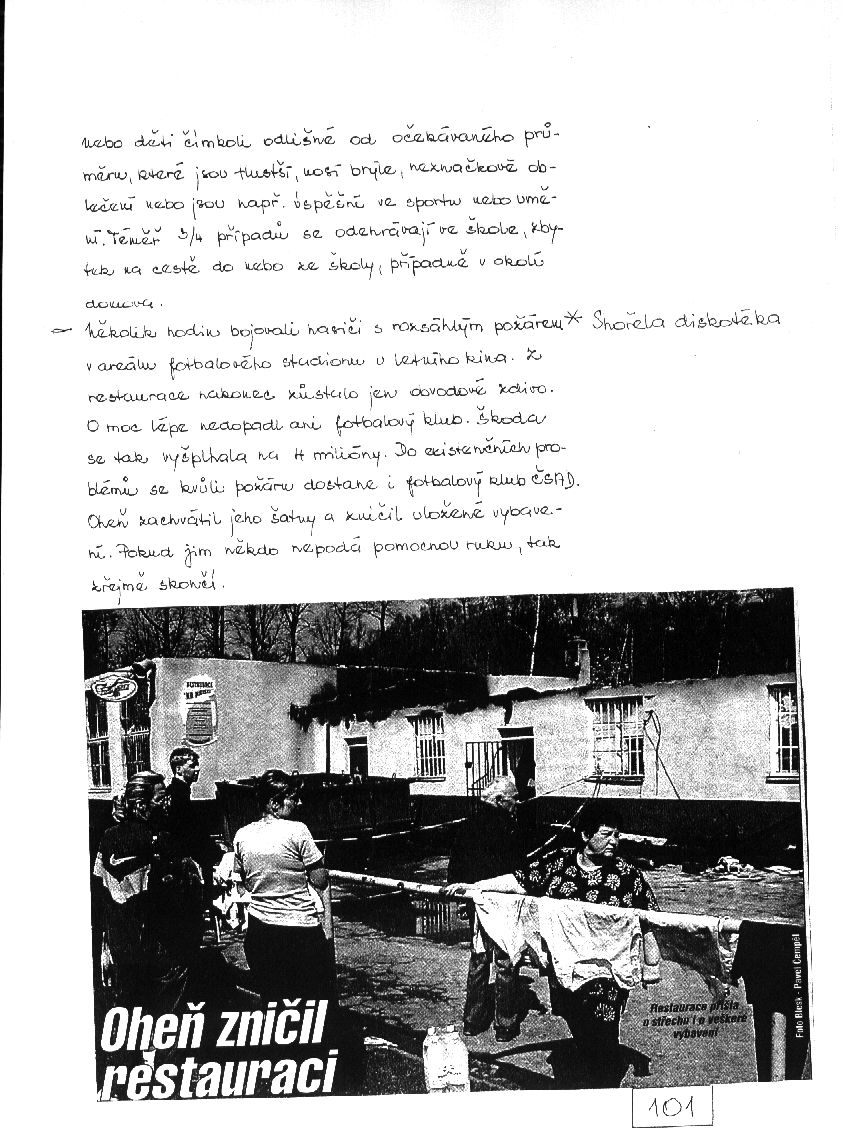 nebo děti čímkoli odlišné od očekávaného prů-
měru, které jsou tlustší, nosí brýle, neznačkové ob-
lečení nebo jsou např. úspěšní ve sportu nebo umě-
ní. Téměř 3/4 případů se odehrávají ve škole, zby-
tek na cestě do nebo ze školy, případně v okolí
domova.
- Několik hodin bojovali hasiči s rozsáhlým požárem * Shořela diskotéka
v areálu fotbalového stadionu u letního kina. Z
restaurace nakonec zůstalo jen obvodové zdivo.
O moc lépe nedopadl ani fotbalový klub. Škoda
se tak vyšplhala na 4 milióny. Do existenčních pro-
blémů se kvůli požáru dostane i fotbalový klub ČSAD.
Oheň zachvátil jeho šatny a zničil uložené vybave-
ní. Pokud jim někdo nepodá pomocnou ruku, tak
zřejmě skončí.
RESTAURACE
Oheň zničil
restauraci
Restaurace přišla
o střechu i o veškeré
vybavení
Foto Blesk - Pavel Cempěl
101